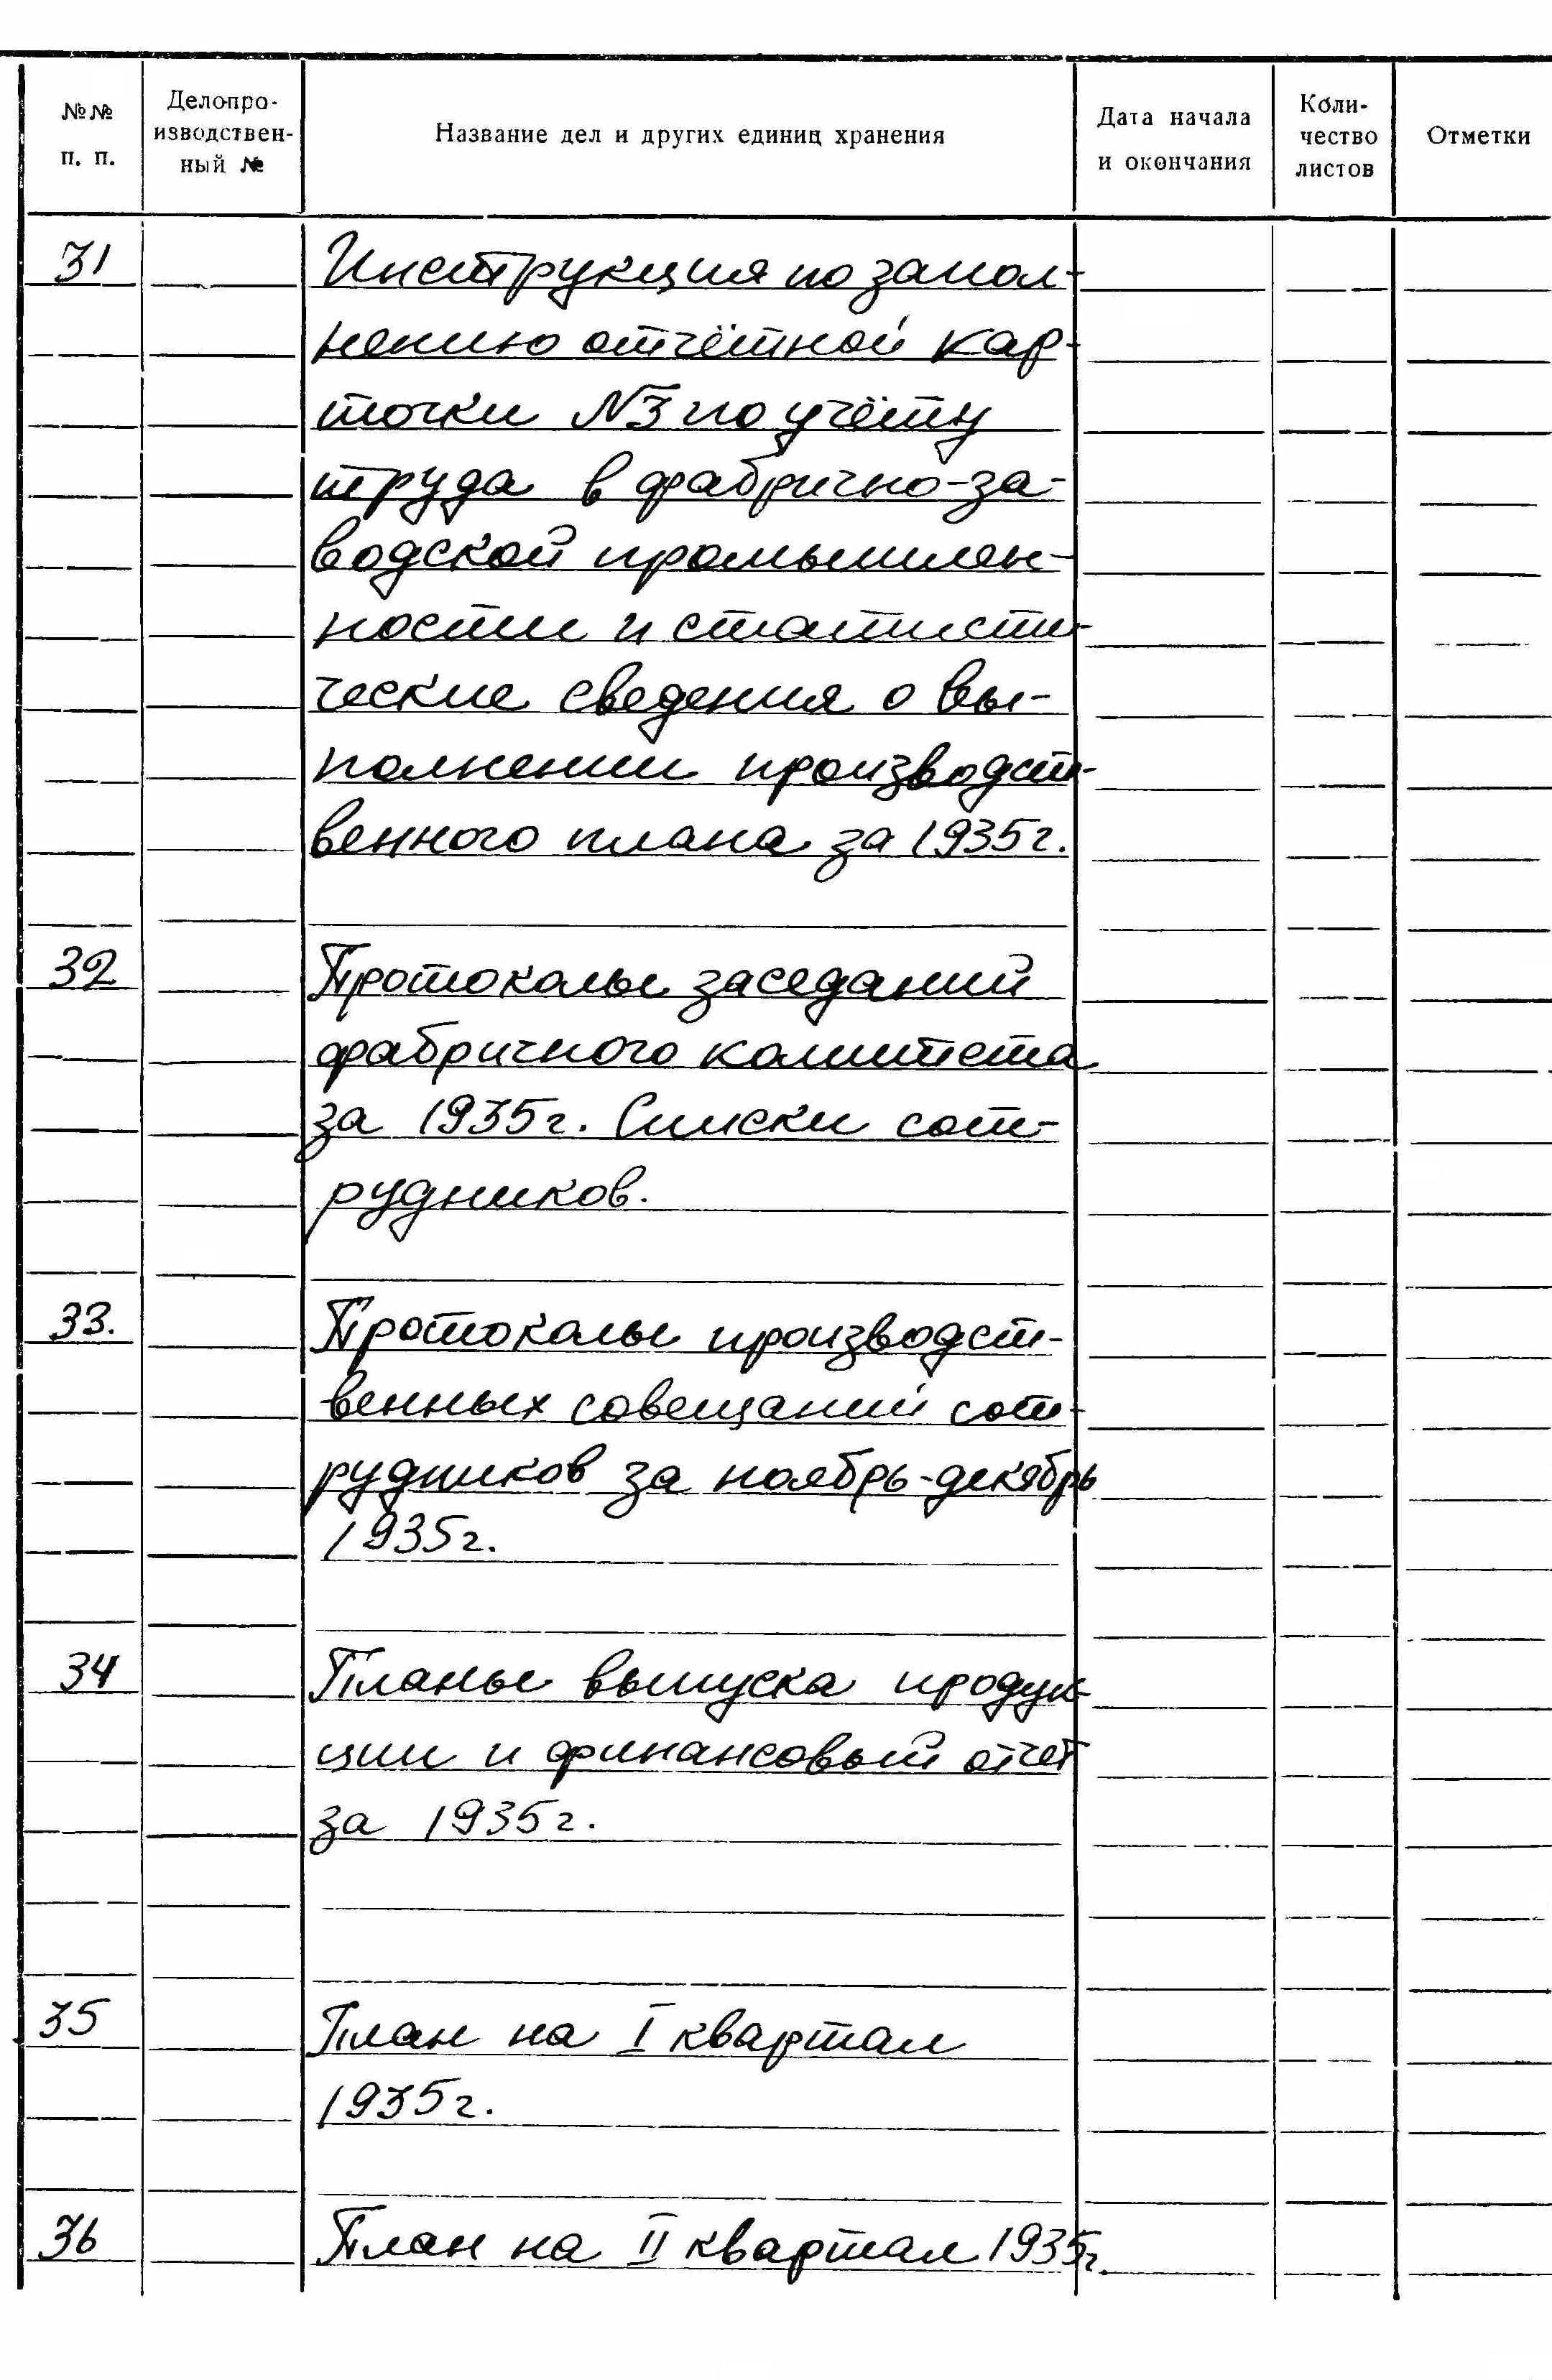 №№ п. п. Делопро-изводствен-ный № Название дел и других единиц хранения Дата начала и окончания Коли-чество листов Отметки
31 Инструкция по запол-
нению отчётной кар-
точки N3 по учёту
труда в фабрично-за-
водской промышлен-
ности и статисти-
ческие сведения о вы-
полнении производст-
венного плана за 1935г.
32 Протоколы заседаний
фабричного комитета
за 1935г. Списки сот-
рудников.
33. Протоколы производст-
венных совещаний сот-
рудников за ноябрь-декабрь
1935г.
34 Планы выпуска продук-
ции и финансовый отчет
за 1935г.
35 План на I квартал
1935г.
36 План на II квартал 1935г.